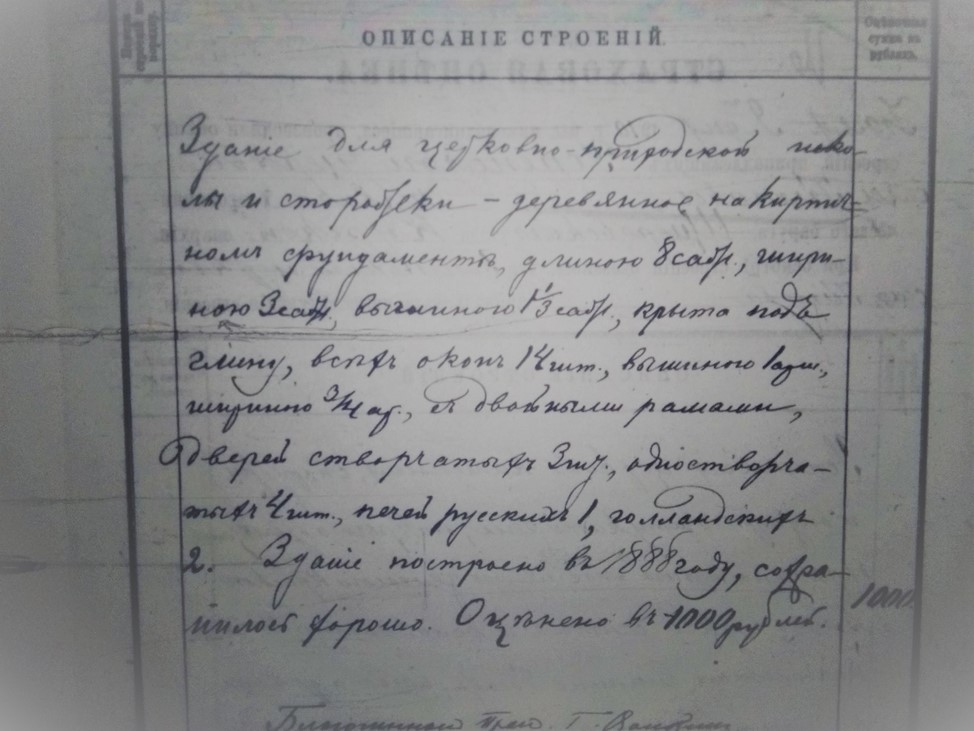 ОПИСАНІЕ СТРОЕНІЙ.
Оцѣночная
сумма въ
рубляхъ.
Зданіе для церковно-приходской шко-
лы и сторожки – деревянное на кирпич-
номъ фундаментѣ, длиною 8 саж., шири-
ною 3 саж., вышиною 1 1/3 саж., крыта подъ
глину, всѣхъ оконъ 14 шт., вышиною 1 арш.,
шириною 3/4 ар., съ двойными рамами,
Дверей створчатыхъ 3 шт., одностворча-
тыхъ 4 шт., печей русскихъ 1, голландскихъ
2. Зданіе построено въ 1888 году, сохра-
нилось хорошо. Оцѣнено въ 1000 рублей.
1000
Благочинный